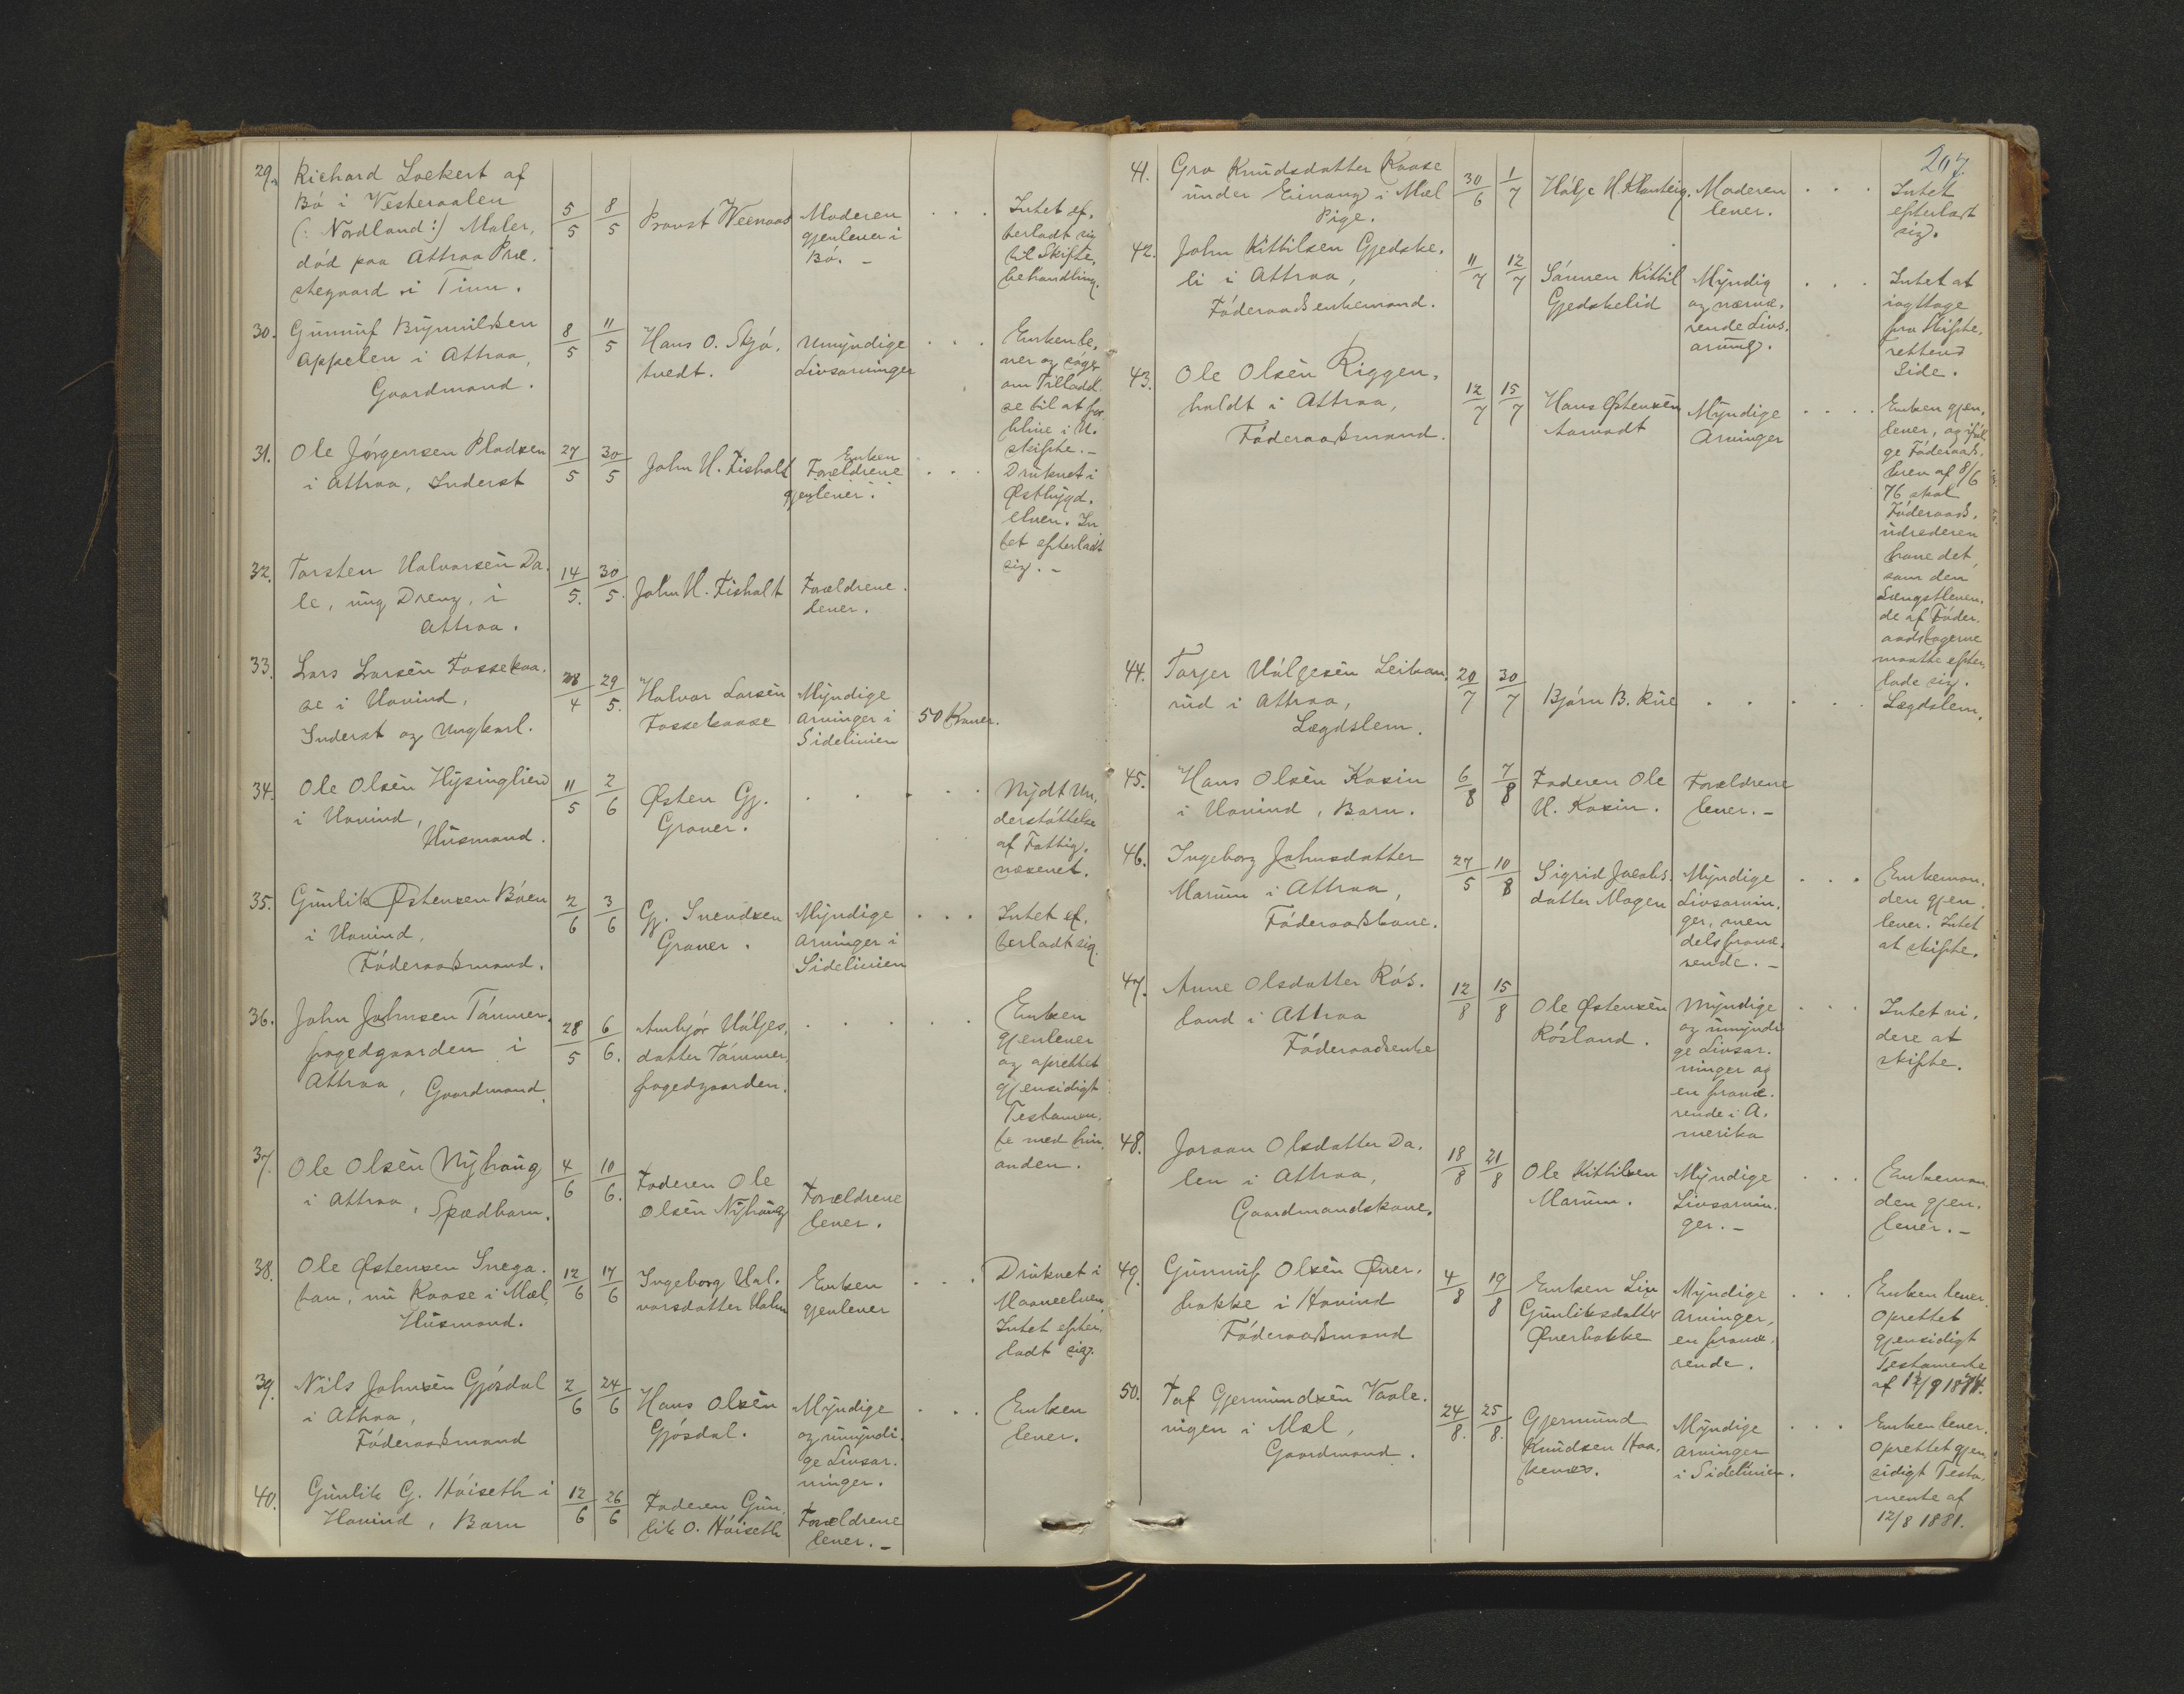 29. Richard Lockert af
Bö i Vesteraalen
(: Nordland :) Maler,
död paa Attraa Præ-
stegaard i Tinn.
5/5 8/5 Provst Weenaas
Moderen
gjenlever i
Bö. -
. . .
Intet ef-
terladt sig
til Skifte-
behandling.
30. Gunnuf Brynnildsen
Appelen i Attraa,
Gaardmand.
8/5 11/5 Hans O. Skjö-
tvedt.
Umyndige
Livsarvinger
. . .
Enken le-
ver og søger
om Tilladel-
se til at for-
blive i U-
skifte. -
31. Ole Jörgensen Pladsen
i Attraa, Inderst
27/5 30/5 John H. Lisholt
Enken
Forældrene
gjenlever.
. . .
Druknet i
Østbygd-
elven. In-
tet efterladt
sig. -
32. Torsten Halvorsen Da-
le, ung Dreng, i
Attraa.
14/5. 30/5. John H. Lisholt
Forældrene
lever.
33. Lars Larsen Fossekaa-
se i Hovind,
Inderst og Ungkarl.
28/4 29/5. Halvor Larsen
Fossekaase
Myndige
Arvinger i
Sidelinien
50 Kroner.
34. Ole Olsen Hysinglien
i Hovind,
Husmand.
11/5 2/6 Østen Gj.
Graver.
. . . . .
Nydt Un-
derstöttelse
af Fattig-
væsenet.
35. Gunlik Østensen Böen
i Hovind,
Föderaadsmand.
2/6 3/6 Gj. Svendsen
Graver.
Myndige
Arvinger i
Sidelinien
. . .
Intet ef-
terladt sig.
36. John Johnsen Tömmer-
fogedgaarden i
Attraa, Gaardmand.
28/5 6/6. Ambjör Höljes-
datter Tömmer-
fogedgaarden.
. . . . .
Enken
gjenlever
og oprettet
gjensidigt
Testamen-
te med hin-
anden.
37. Ole Olsen Nyhaug
i Attraa, Spædbarn.
4/6 10/6. Faderen Ole
Olsen Nyhaug
Forældrene
lever.
38. Ole Østensen
nu Kaase i Mæl,
Husmand.
12/6 17/6 Ingeborg Hal-
vorsdatter
Enken
gjenlever
. . .
Druknet i
Maaneelven.
Intet efter-
ladt sig.
39. Nils Johnsen Gjösdal
i Attraa,
Föderaadsmand
2/6 24/6 Hans Olsen
Gjösdal.
Myndige
og umyndi-
ge Livsar-
vinger.
. . .
Enken
lever.
40. Gunlik G. Höiseth i
Hovind, Barn
12/6 26/6 Faderen Gun-
lik O. Höiseth
Forældrene
lever. -
207
41. Gro Knudsdatter Kaase
under Einang i Mæl
Pige.
30/6 1/7 Hölje H.
Moderen
lever.
. . .
Intet
efterladt
sig.
42. John Kittilsen Gjedske-
li i Attraa,
Föderaadsenkemand.
11/7 12/7 Sönnen Kittil
Gjedskelid
Myndig
og nærvæ-
rende Livs-
arving.
. . .
Intet at
iagttage
fra Skifte-
rettens
Side.
43. Ole Olsen Riggen-
holdt i Attraa,
Föderaadsmand.
12/7 15/7 Hans Østensen
Myndige
Arvinger
. . . .
Enken gjen-
lever, og iföl-
ge Föderaads-
brev af 8/6
76 skal
Föderaads-
udrederen
have det,
som den
Længstleven-
de af Föder-
aadstagerne
maatte efter-
lade sig.
44. Torger Höljesen Leikan-
rud i Attraa,
Lægdslem.
20/7 30/7 Björn B. Rue
. . . . .
Lægdslem.
45. Hans Olsen Kasin
i Hovind, Barn.
6/8 7/8 Faderen Ole
H. Kasin.
Forældrene
lever. -
46. Ingeborg Johnsdatter
Marum i Attraa,
Föderaadskone.
27/5 10/8 Sigrid Jacobs-
datter Mogen
Myndige
Livsarvin-
ger, men
dels fravæ-
rende. -
. . .
Enkeman-
den gjen-
lever. Intet
at skifte.
47. Anne Olsdatter Rös-
land i Attraa
Föderaadsenke
12/8 15/8 Ole Østensen
Rösland.
Myndige
og umyndi-
ge Livsar-
vinger og
en fravæ-
rende i A-
merika
. . .
Intet vi-
dere at
skifte.
48. Joraan Olsdatter Da-
len i Attraa,
Gaardmandskone.
18/8 21/8 Ole Kittilsen
Marum.
Myndige
Livsarvin-
ger. -
. . .
Enkeman-
den gjen-
lever. -
49. Gunnuf Olsen Øver-
bakke i Hovind
Föderaadsmand
4/8 19/8 Enken Liv
Gunliksdatter
Øverbakke
Myndige
Arvinger,
en fravæ-
rende.
. . .
Enken lever.
Oprettet
gjensidigt
Testamente
af 12/9 1874.
50. Taf Gjermundsen Vaale-
ningen i Mæl,
Gaardmand.
24/8. 25/8. Gjermund
Knudsen Haa-
kenæs.
Myndige
Arvinger
i Sidelinien.
. . .
Enken lever.
Oprettet gjen-
sidigt Testa-
mente af
12/8 1881.